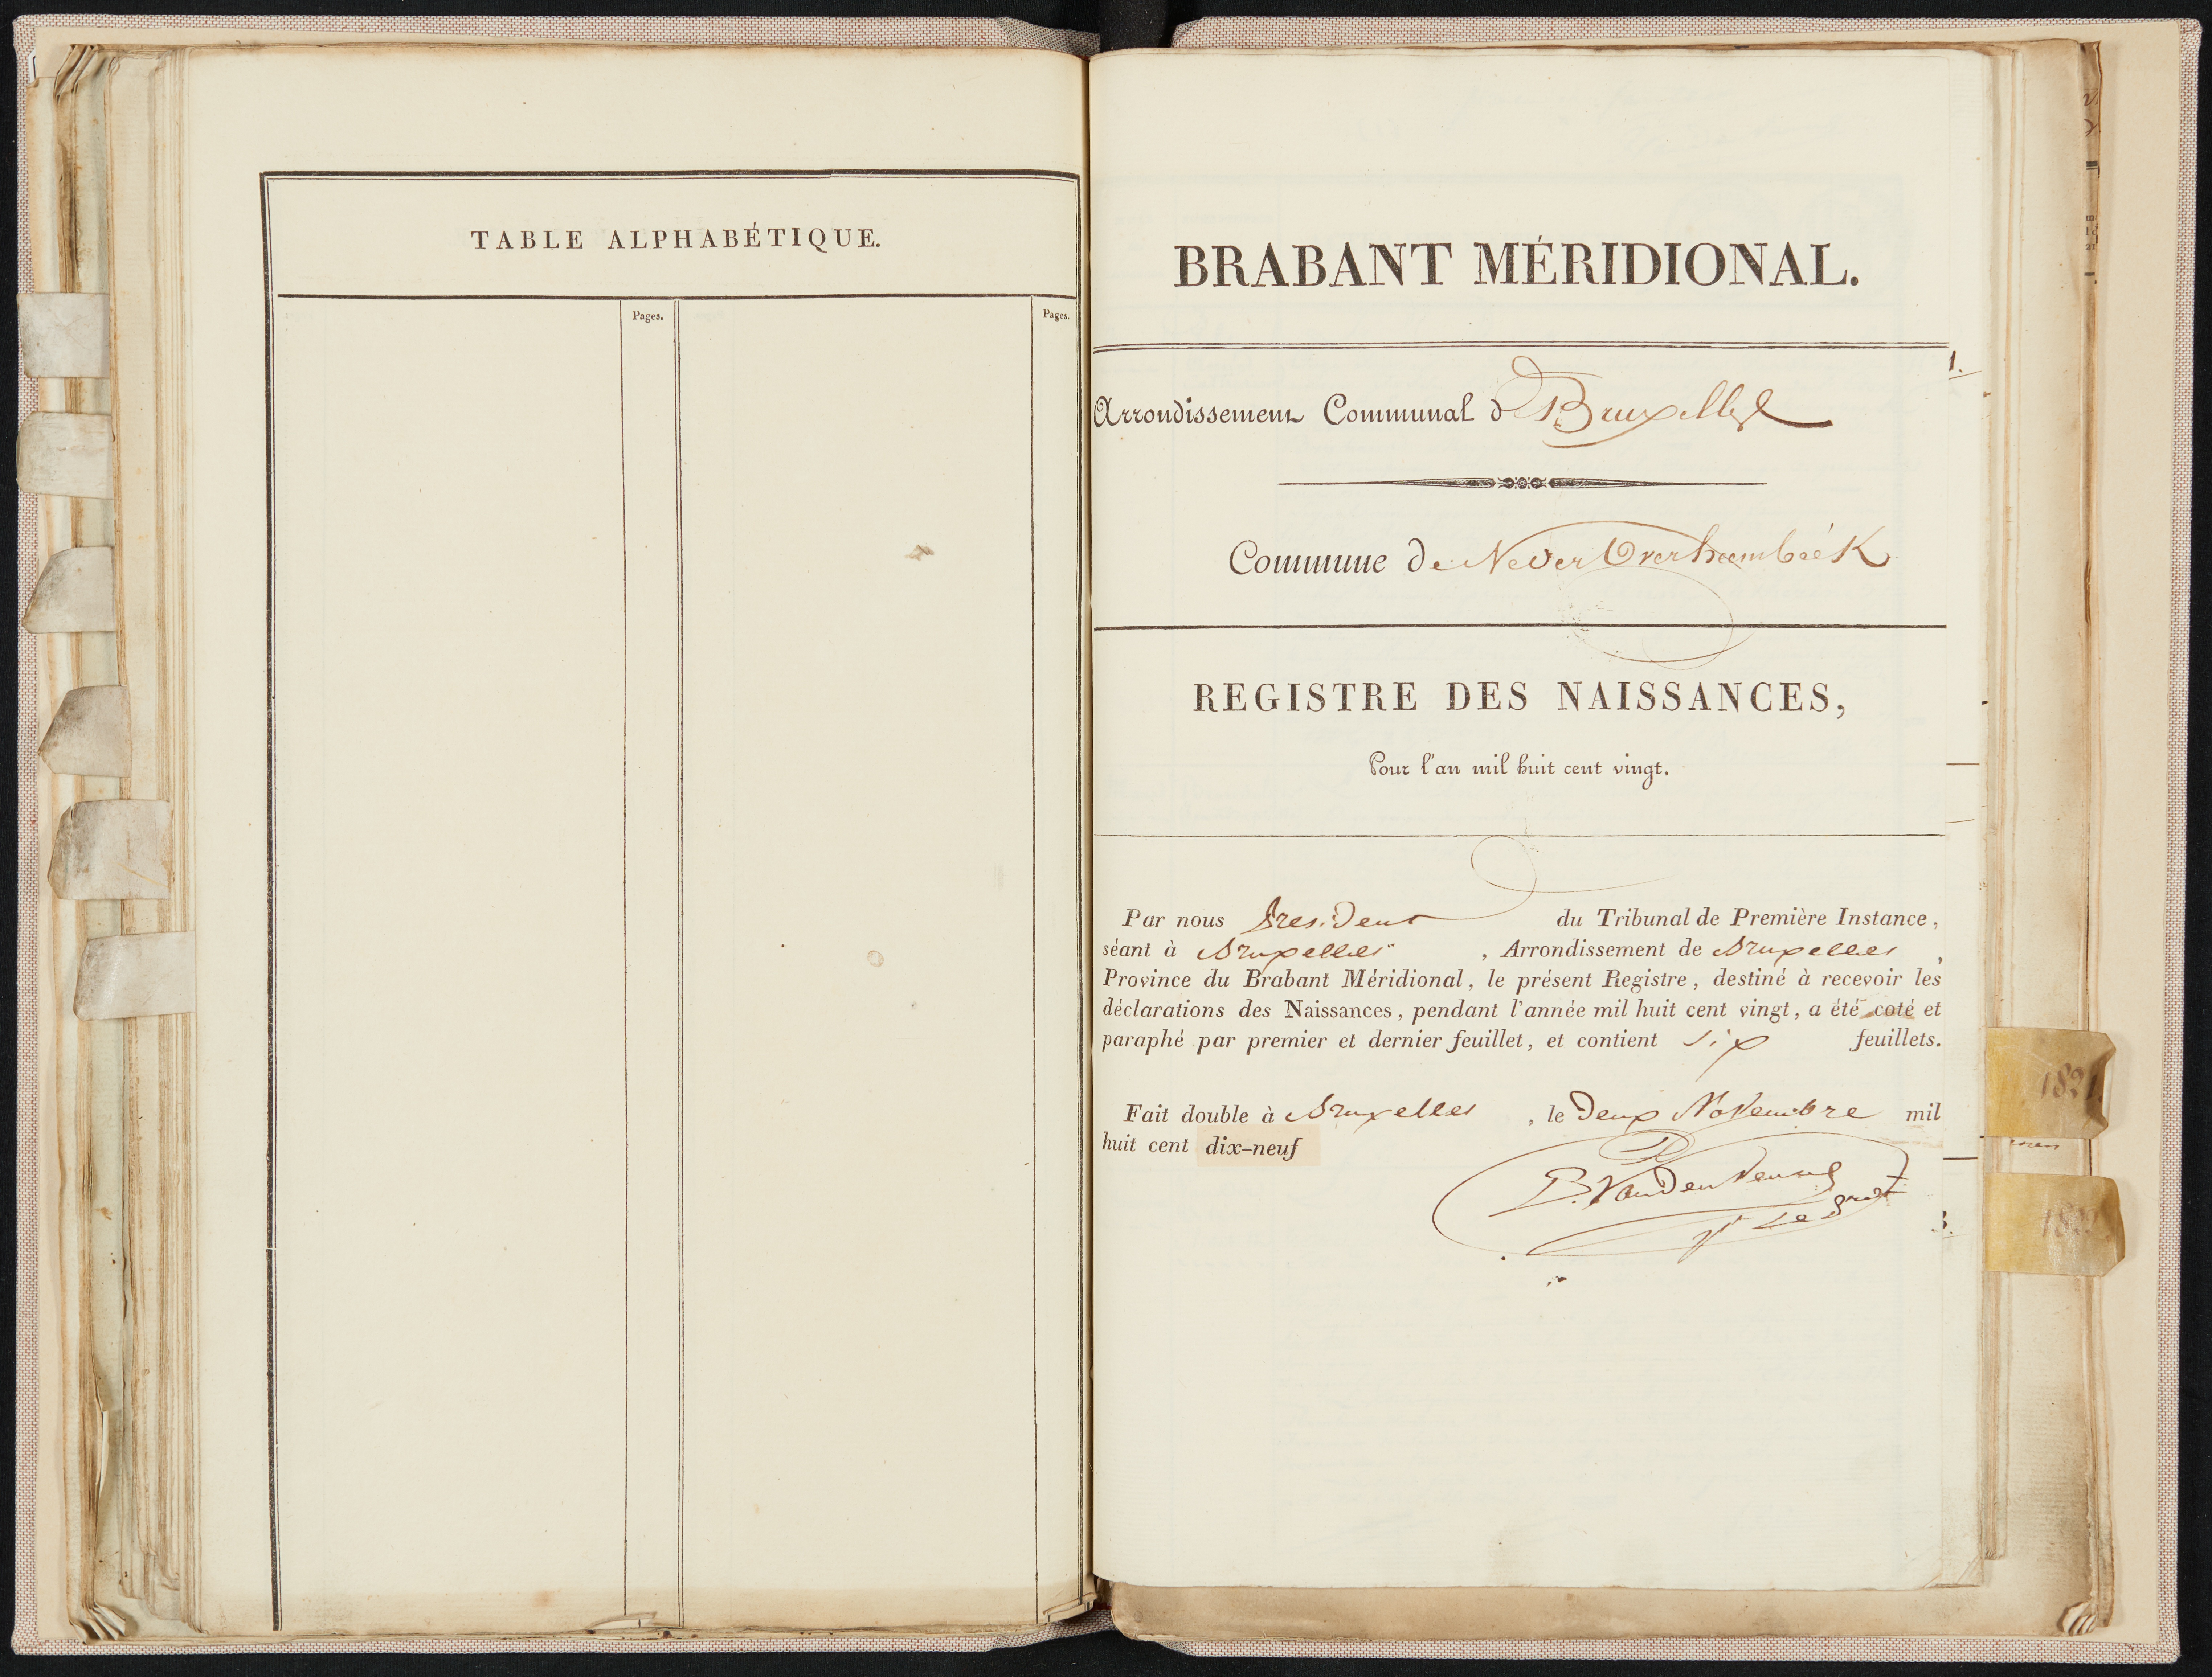 TABLE ALPHABÉTIQUE.
Pages.
Pages.
BRABANT MÉRIDIONAL.
1.
Arrondissement Communal de Bruxelles
Commune de Neder Overheembéék
REGISTRE DES NAISSANCES,
Pour l'an mil huit cent vingt.
Par nous President du Tribunal de Première Instance,
séant à Bruxelles, Arrondissement de Bruxelles,
Province du Brabant Méridional, le présent Registre, destiné à recevoir les
déclarations des Naissances, pendant l'année mil huit cent vingt, a été coté et
paraphé par premier et dernier feuillet, et contient six feuillets.
Fait double à Bruxelles, le Deux Novembre mil
huit cent dix-neuf
1821